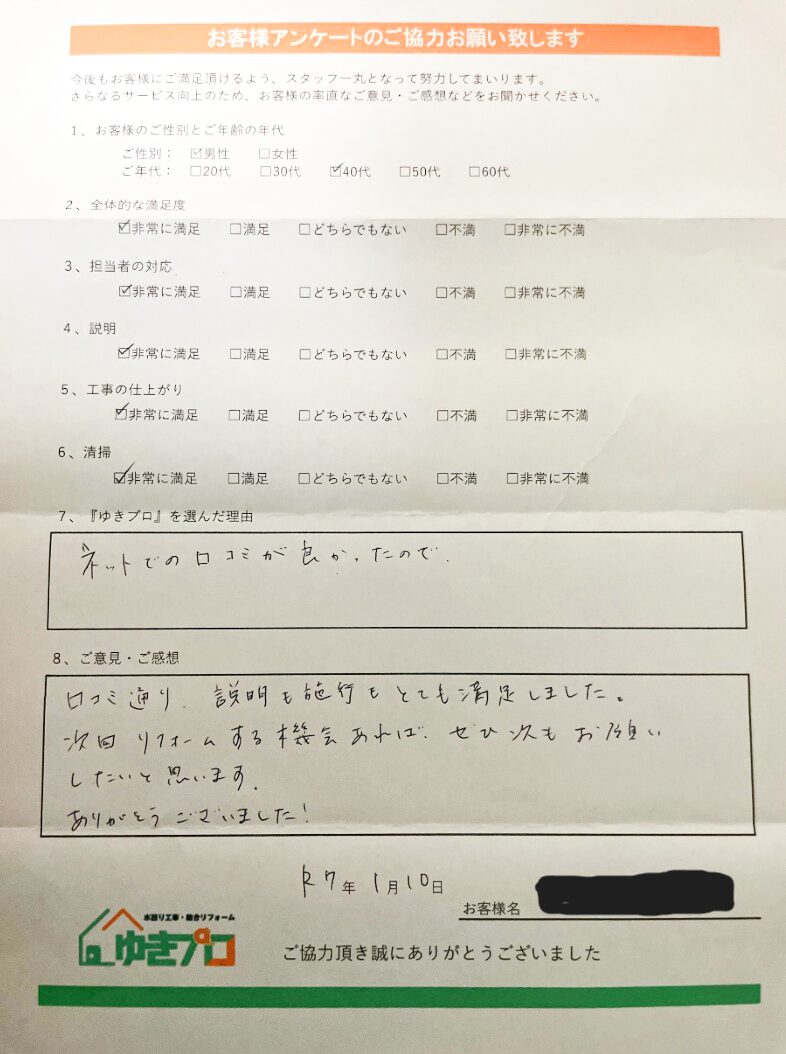 お客様アンケートのご協力お願い致します
今後もお客様にご満足頂けるよう、スタッフ一丸となって努力してまいります。
さらなるサービス向上のため、お客様の率直なご意見・ご感想などをお聞かせください。
1、お客様のご性別とご年齢の年代
ご性別： ☑男性 □女性
ご年代： □20代 □30代 ☑40代 □50代 □60代
2、全体的な満足度
☑非常に満足 □満足 □どちらでもない □不満 □非常に不満
3、担当者の対応
☑非常に満足 □満足 □どちらでもない □不満 □非常に不満
4、説明
☑非常に満足 □満足 □どちらでもない □不満 □非常に不満
5、工事の仕上がり
☑非常に満足 □満足 □どちらでもない □不満 □非常に不満
6、清掃
☑非常に満足 □満足 □どちらでもない □不満 □非常に不満
7、『ゆきプロ』を選んだ理由
ネットでの口コミが良かったので.
8、ご意見・ご感想
口コミ通り、説明も施行もとても満足しました。
次回リフォームする機会あれば、ぜひ次もお願い
したいと思います.
ありがとうございました!
R7年 1月10日
お客様名
水回り工事・総合リフォーム
ゆきプロ
ご協力頂き誠にありがとうございました